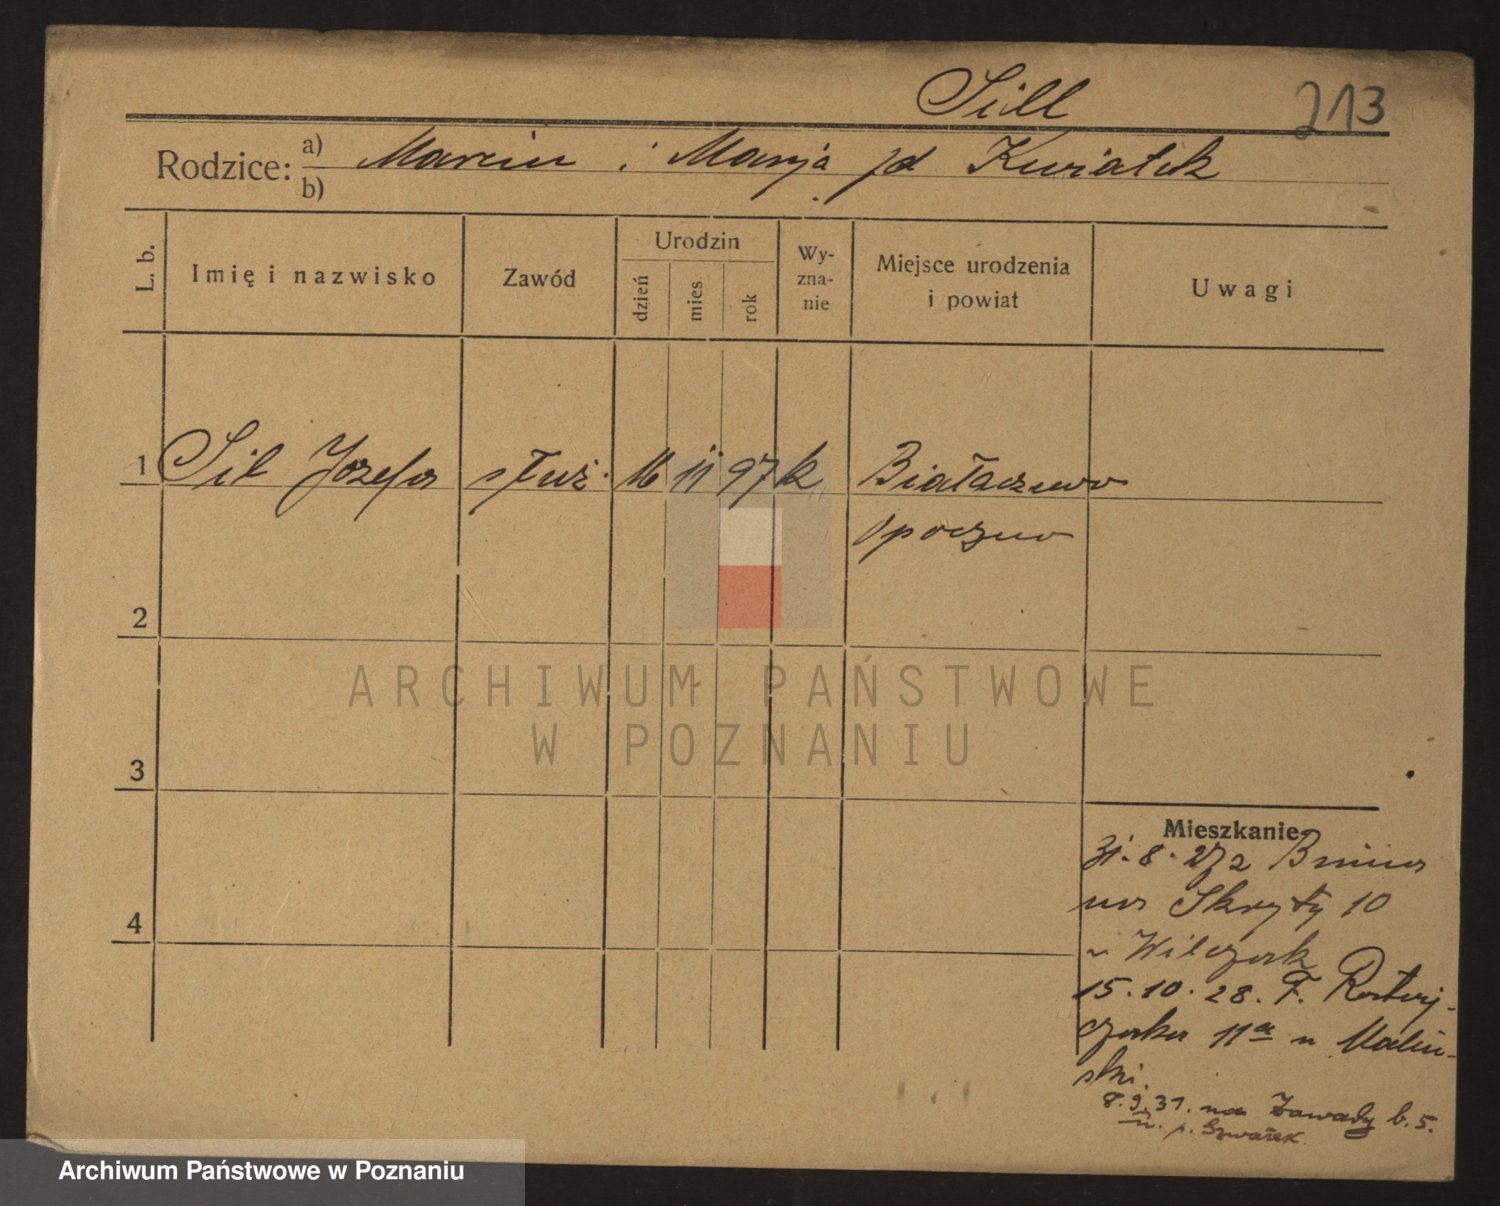 Sill 213
Rodzice: a) Marcin i Marja zd Kwiatek
b)
L. b.
Imię i nazwisko
Zawód
Urodzin
dzień
mies.
rok
Wy-
zna-
nie
Miejsce urodzenia
i powiat
Uwagi
1 Sil Józefa służ. 16 11 97 k Białaczewo
Opoczno
2
ARCHIWUM PAŃSTWOWE
W POZNANIU
3
4
Mieszkanie
31. 8. 27 z Bnina
na Skryty 10
u Wilczak
15. 10. 28. F. Rataj-
czaka 11a u Maliń-
ski.
8. 9. 31. na Zawady b. 5.
u. p. Szwałek.
Archiwum Państwowe w Poznaniu